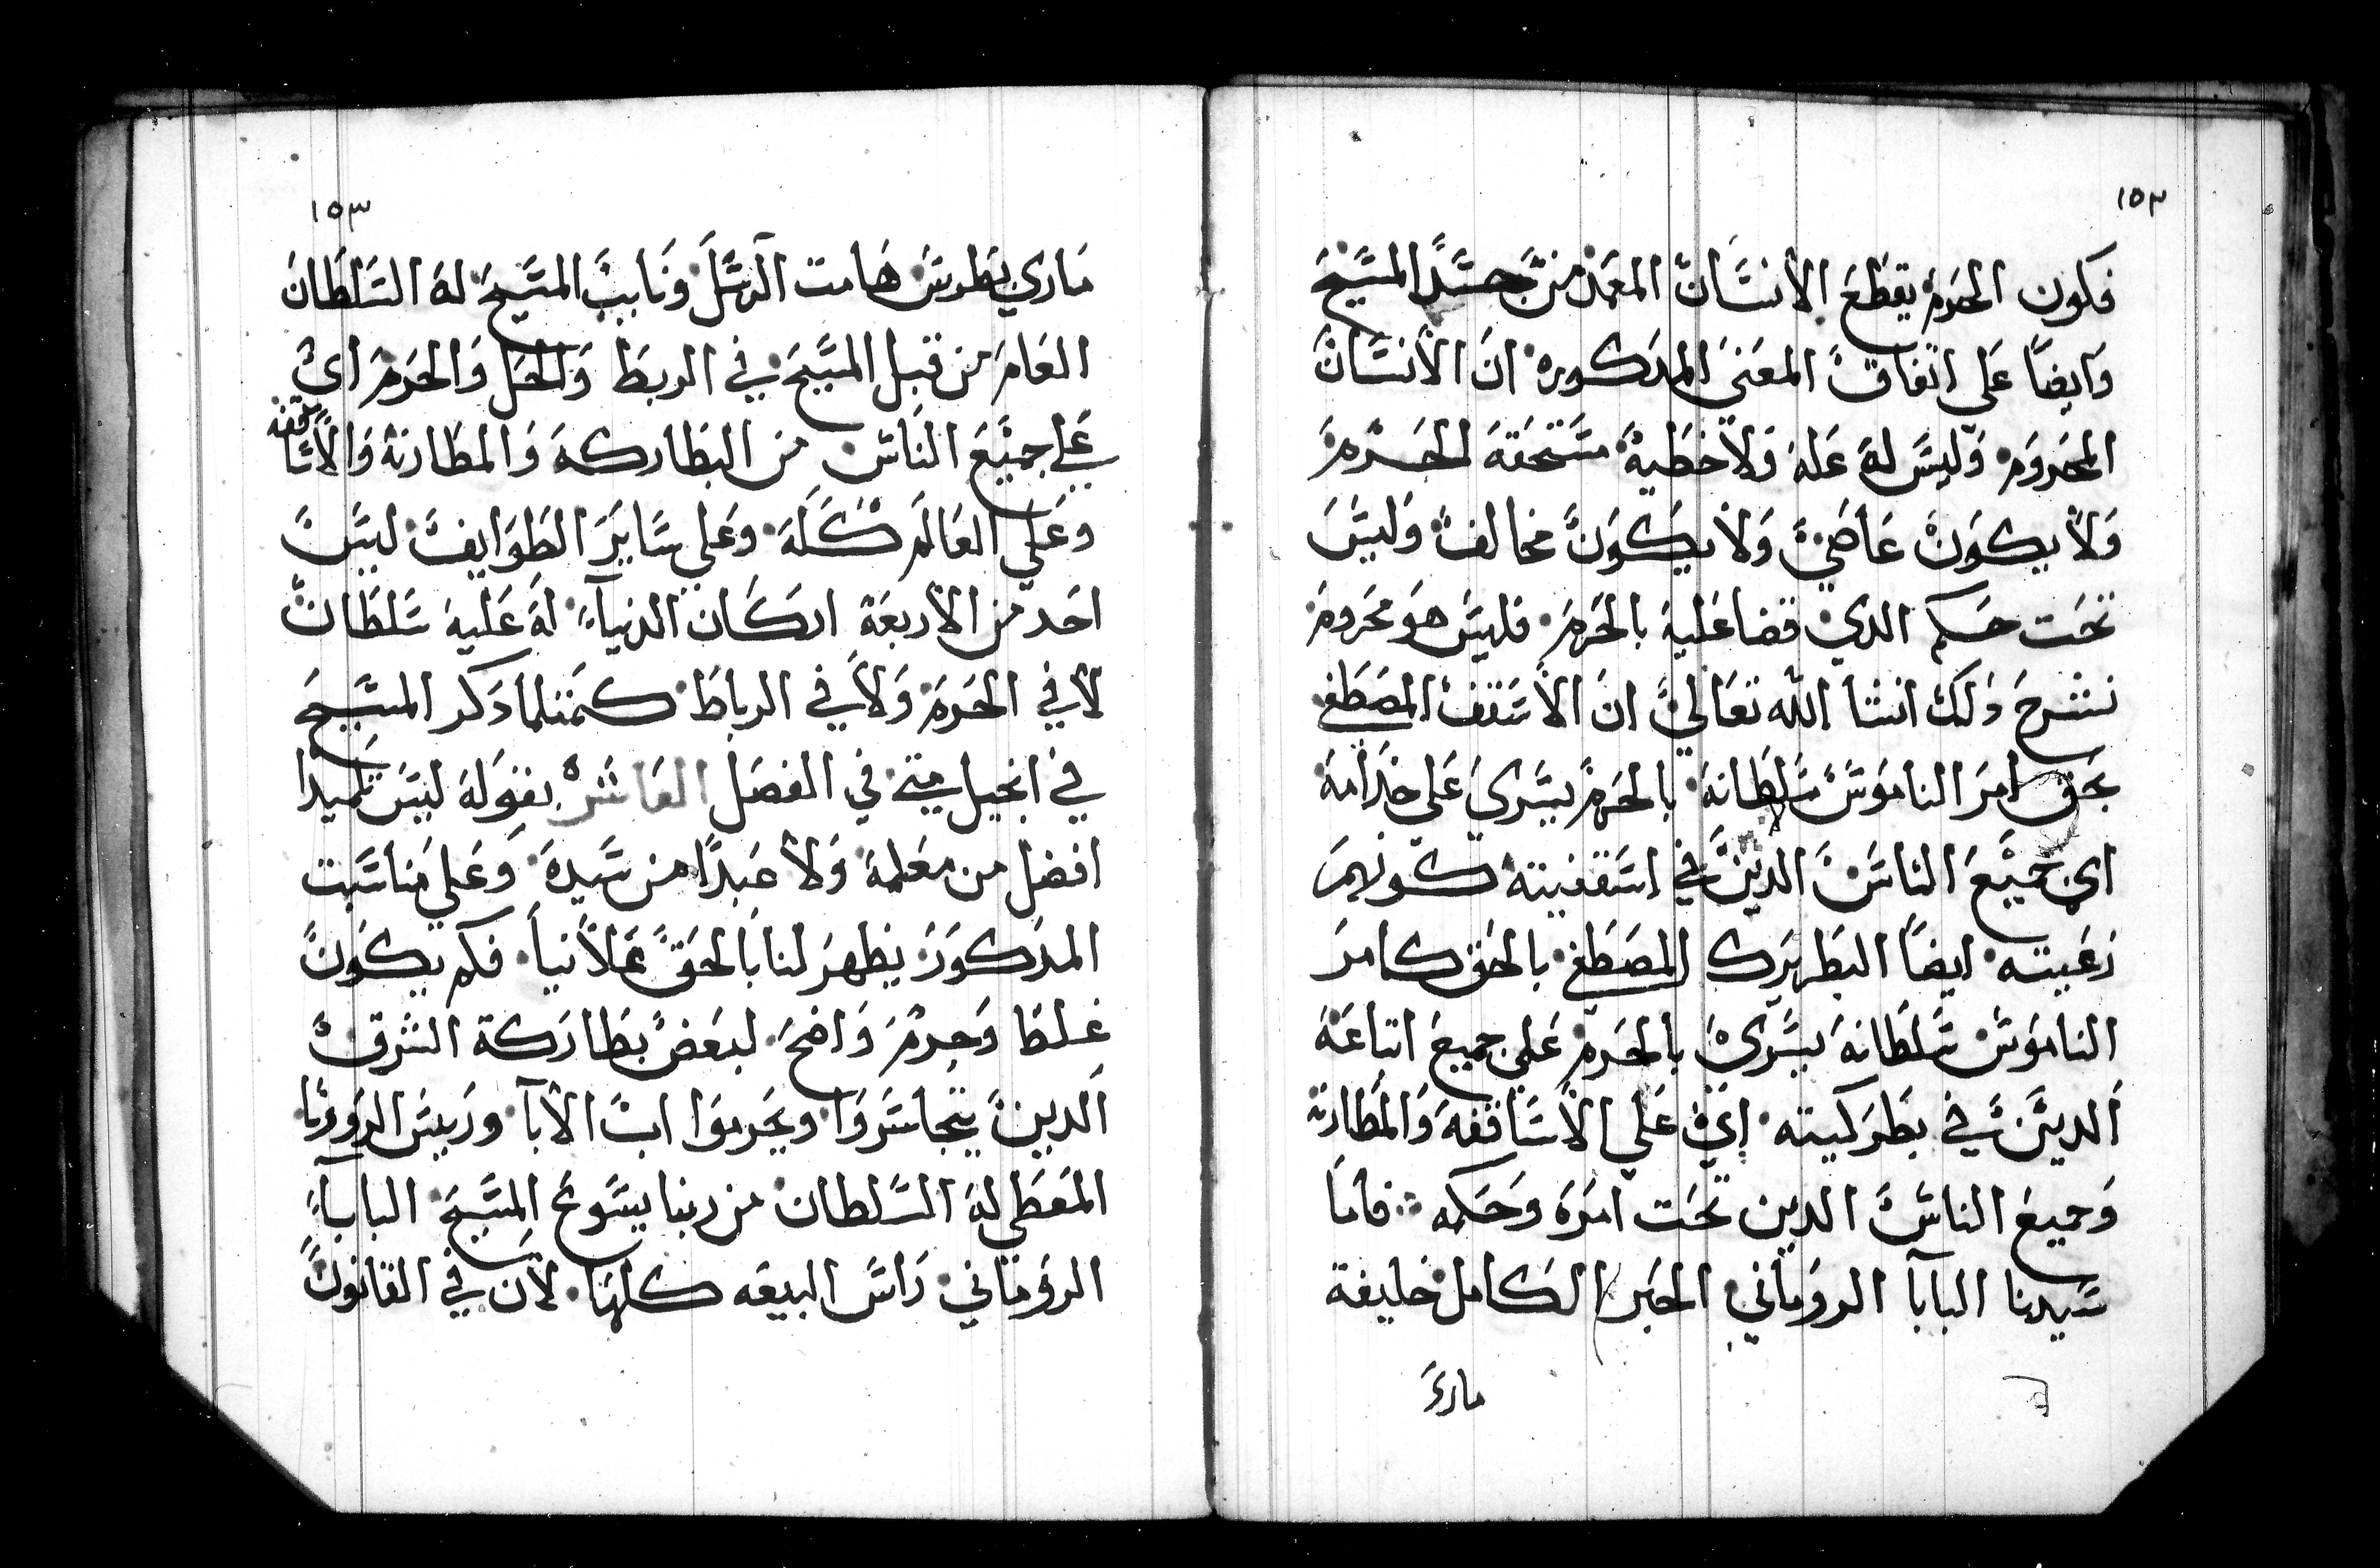 ١٥٣
فكون الحرم يقطع الانسان المعمد من جسد المسيح
وايضا علي اتفاق المعني المدكوره ان الانسان
المحروم وليس له عله ولا خطية مستحقه الحرم
ولا يكون عاصي ولا يكون مخالف وليس
تحت حكم الدي قضا عليه بالحرم فليس هو محروم
نشرح دلك انشا الله تعالي ان الاسقف المصطفي
بحق امر الناموس سلطانه بالحرم يسري علي خدامه
اي جميع الناس الدين في اسقفيته كونهم
رعيته ايضا البطريرك المصطفي بالحق كامر
الناموس سلطانه يسري بالحرم علي جميع اتباعه
الدين في بطركيته اي علي الاساقفه والمطارنه
وجميع الناس الدين تحت امره وحكمه فاما
سيدنا البابا الروماني الحبر الكامل خليفة
ماري
١٥٣
ماري بطرس هامت الرسل ونايب المسيح له السلطان
العام من قبل المسيح في الربط والحل والحرم اي
علي جميع الناس من البطاركه والمطارنه والاساقفه
وعلي العالم كله وعلي ساير الطوايف ليس
احد من الاربعة اركان الدنيا له عليه سلطان
لا في الحرم ولا في الرباط كمتلما دكر المسيح
في انجيل متي في الفصل العاشر بقوله ليس تلميدا
افضل من معلمه ولا عبدا من سيده وعلي مناسبت
المدكور يظهر لنا بالحق عمالانيا فكم يكون
غلطا وجرم واضح لبعض بطاركة الشرق
الدين يتجاسروا ويحرموا اب الابا وريس الروونا
المعطي له السلطان من ربنا يسوع المسيح البابا
الروماني راس البيعه كلها لان في القانون